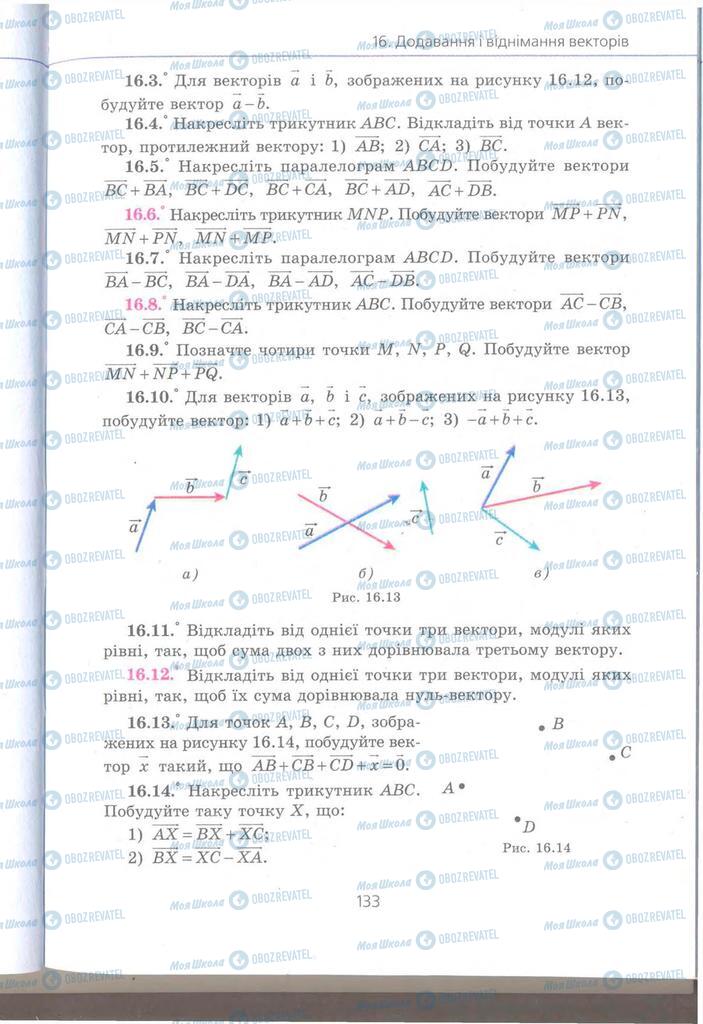 16. Додавання і віднімання векторів
16.3.° Для векторів a⃗ і b⃗, зображених на рисунку 16.12, по-
будуйте вектор a⃗ − b⃗.
16.4.° Накресліть трикутник ABC. Відкладіть від точки A век-
тор, протилежний вектору: 1) AB⃗; 2) CA⃗; 3) BC⃗.
16.5.° Накресліть паралелограм ABCD. Побудуйте вектори
BC⃗ + BA⃗, BC⃗ + DC⃗, BC⃗ + CA⃗, BC⃗ + AD⃗, AC⃗ + DB⃗.
16.6.° Накресліть трикутник MNP. Побудуйте вектори MP⃗ + PN⃗,
MN⃗ + PN⃗, MN⃗ + MP⃗.
16.7.° Накресліть паралелограм ABCD. Побудуйте вектори
BA⃗ − BC⃗, BA⃗ − DA⃗, BA⃗ − AD⃗, AC⃗ − DB⃗.
16.8.° Накресліть трикутник ABC. Побудуйте вектори AC⃗ − CB⃗,
CA⃗ − CB⃗, BC⃗ − CA⃗.
16.9.° Позначте чотири точки M, N, P, Q. Побудуйте вектор
MN⃗ + NP⃗ + PQ⃗.
16.10.° Для векторів a⃗, b⃗ і c⃗, зображених на рисунку 16.13,
побудуйте вектор: 1) a⃗ + b⃗ + c⃗; 2) a⃗ + b⃗ − c⃗; 3) −a⃗ + b⃗ + c⃗.
a⃗ b⃗ c⃗ b⃗ a⃗ c⃗ a⃗ b⃗ c⃗
а) б) в)
Рис. 16.13
16.11.° Відкладіть від однієї точки три вектори, модулі яких
рівні, так, щоб сума двох з них дорівнювала третьому вектору.
16.12.° Відкладіть від однієї точки три вектори, модулі яких
рівні, так, щоб їх сума дорівнювала нуль-вектору.
16.13.° Для точок A, B, C, D, зобра-
жених на рисунку 16.14, побудуйте век-
тор x⃗ такий, що AB⃗ + CB⃗ + CD⃗ + x⃗ = 0⃗.
16.14.° Накресліть трикутник ABC.
Побудуйте таку точку X, що:
1) AX⃗ = BX⃗ + XC⃗;
2) BX⃗ = XC⃗ − XA⃗.
B
C
A
D
Рис. 16.14
133
Моя Школа OBOZREVATEL